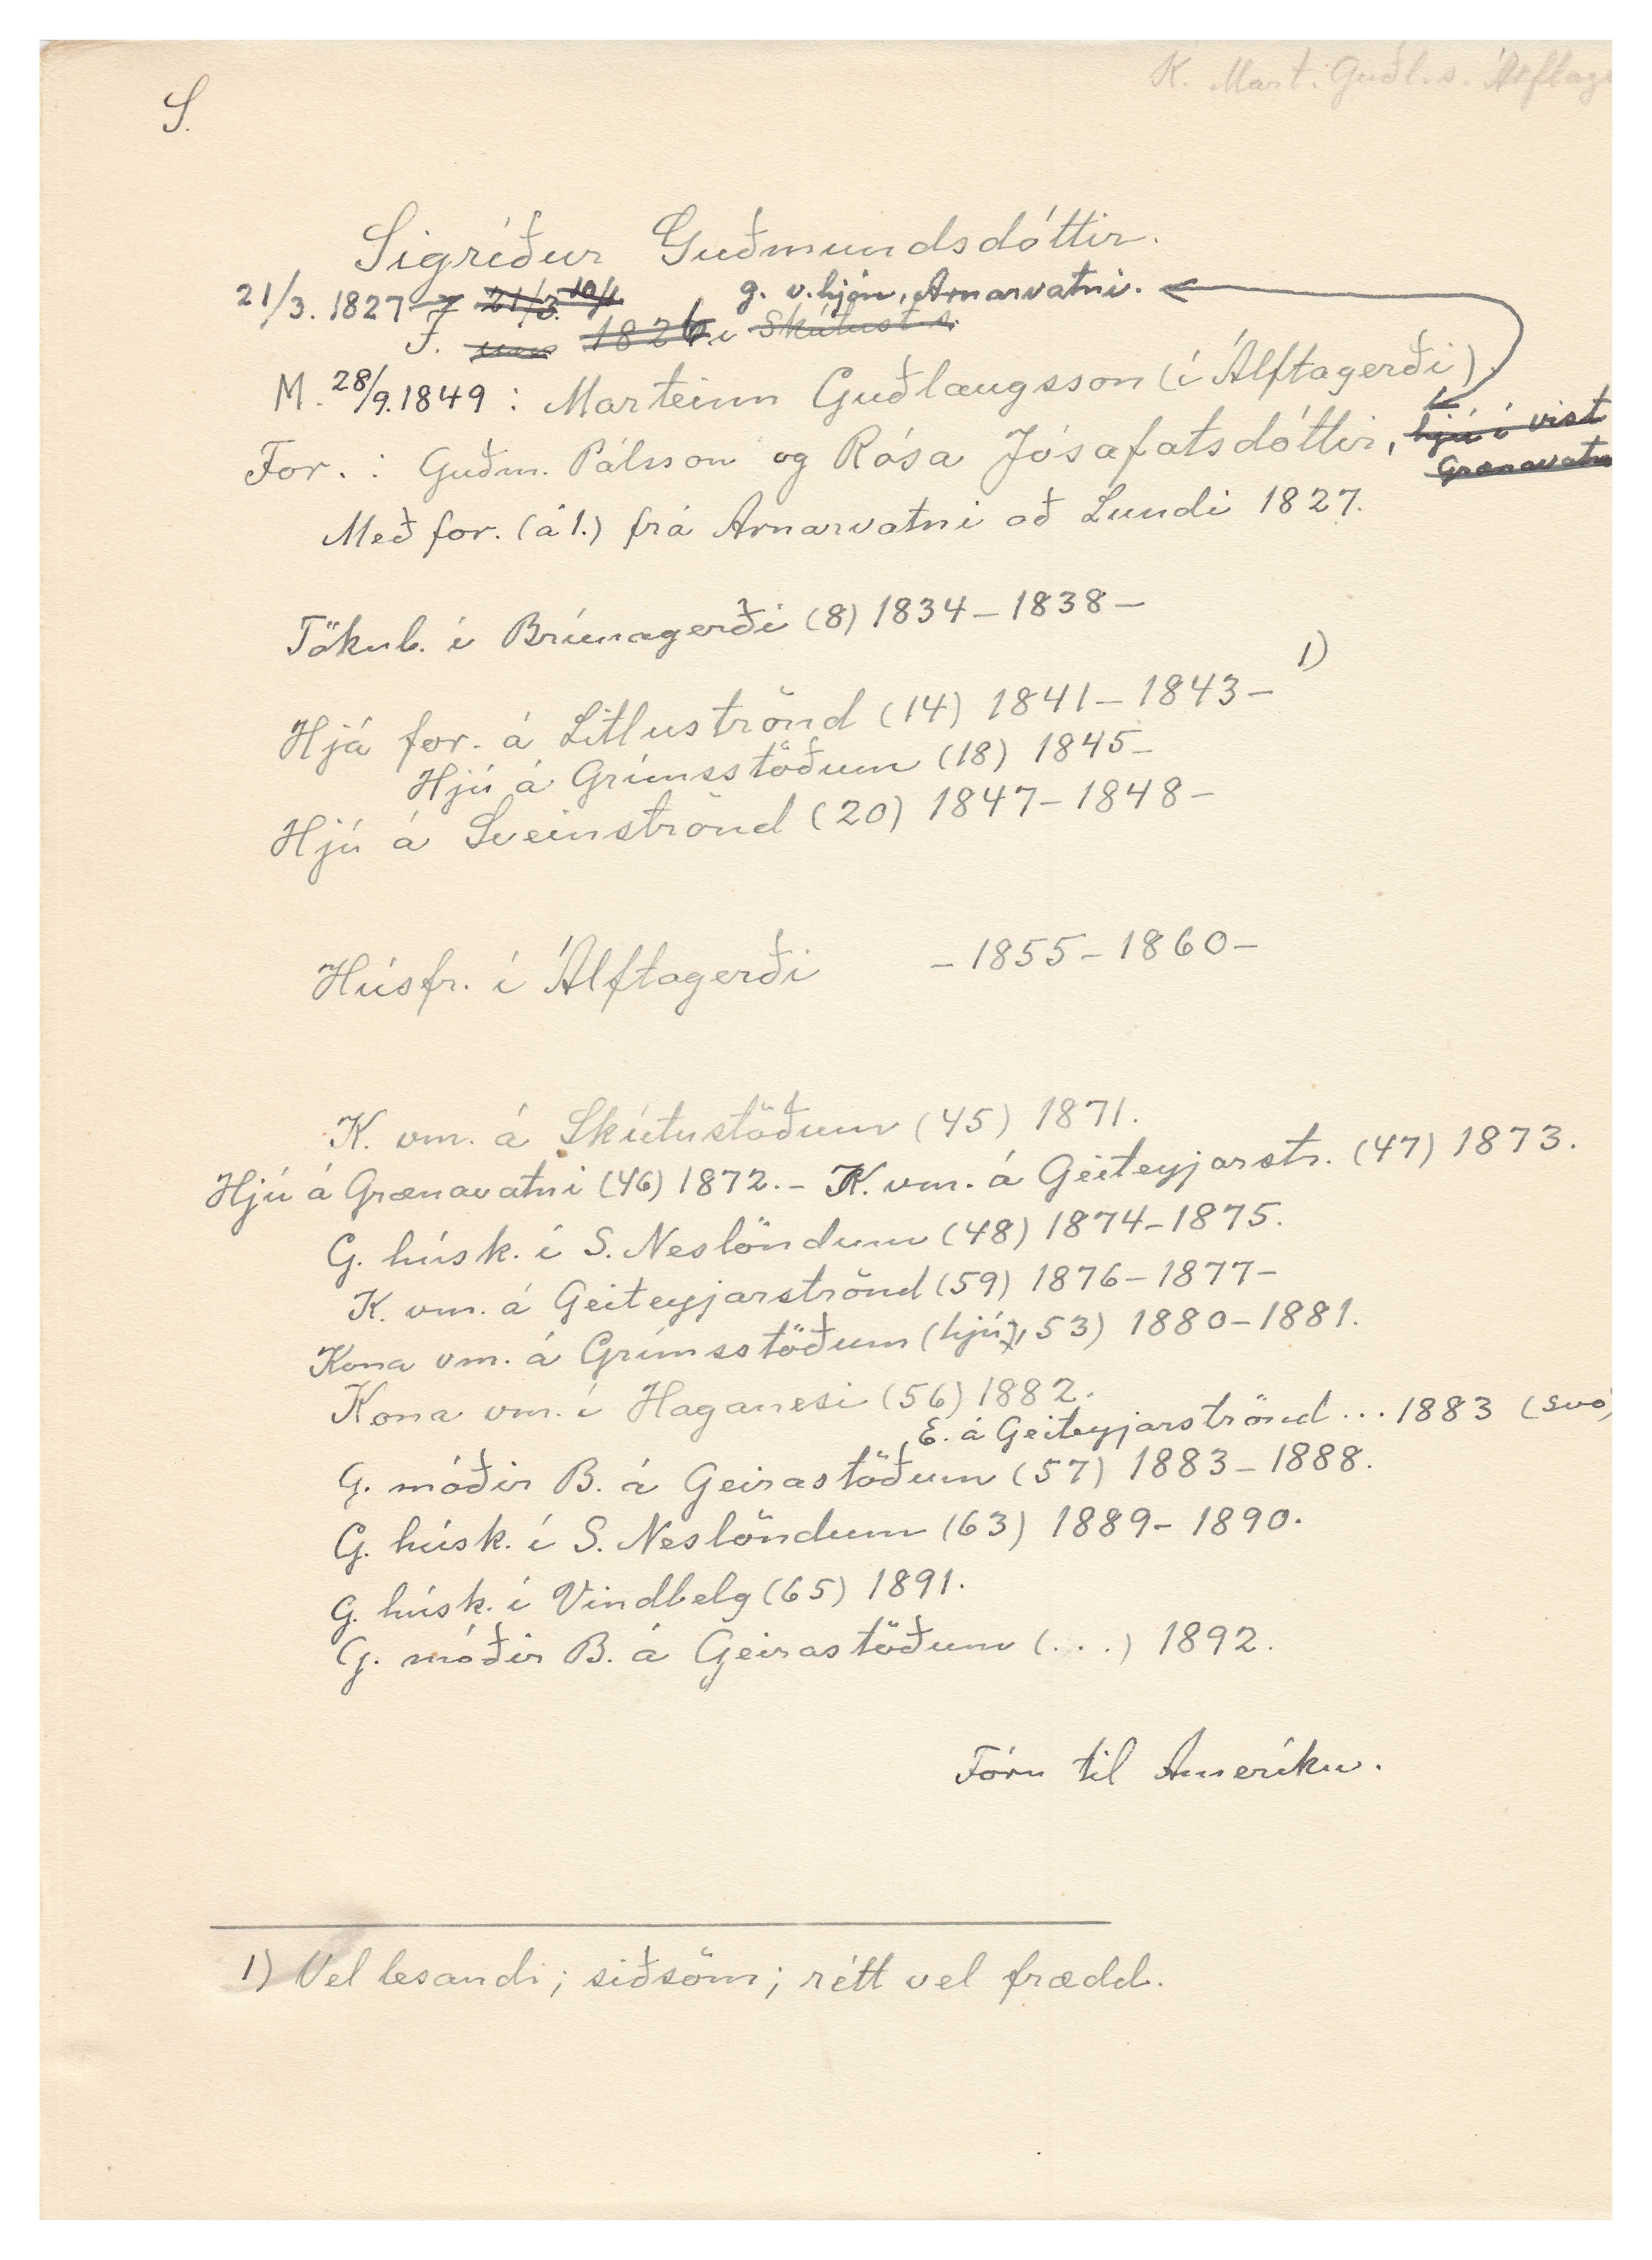 K. Mart. Guðl.s. Álftage
S.
Sigríður Guðmundsdóttir.
21/3. 1827 7 21/3. 10/1 g. v. hjón, Arnarvatni.
F. 1826 í Skútust.s.
M. 28/9. 1849 : Marteinn Guðlaugsson (í Álftagerði).
For. : Guðm. Pálsson og Rósa Jósafatsdóttir, hjú í vist
Grænavatn
Með for. (á 1.) frá Arnarvatni að Lundi 1827.
Tökub. í Brúnagerði (8) 1834 – 1838 –
Hjá for. á Litluströnd (14) 1841 – 1843 – 1)
Hjú á Grímsstöðum (18) 1845 –
Hjú á Sveinströnd (20) 1847 – 1848 –
Húsfr. í Álftagerði – 1855 – 1860 –
K. vm. á Skútustöðum (45) 1871.
Hjú á Grænavatni (46) 1872. – K. vm. á Geiteyjarstr. (47) 1873.
G. húsk. í S. Neslöndum (48) 1874 – 1875.
K. vm. á Geiteyjarströnd (59) 1876 – 1877 –
Kona vm. á Grímsstöðum (hjú, 53) 1880 – 1881.
Kona vm. í Haganesi (56) 1882.
E. á Geiteyjarströnd ... 1883 (svo)
G. móðir B. á Geirastöðum (57) 1883 – 1888.
G. húsk. í S. Neslöndum (63) 1889 – 1890.
G. húsk. í Vindbelg (65) 1891.
G. móðir B. á Geirastöðum (...) 1892.
Fóru til Ameríku.
1) Vel lesandi; siðsöm; rétt vel frædd.